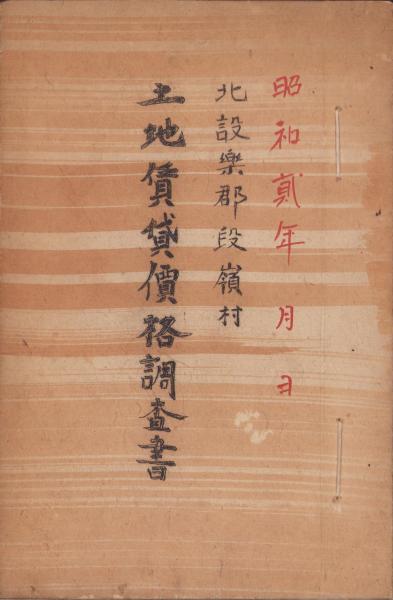 昭和貳年 月 日
北設樂郡段嶺村
土地賃貸價格調査書